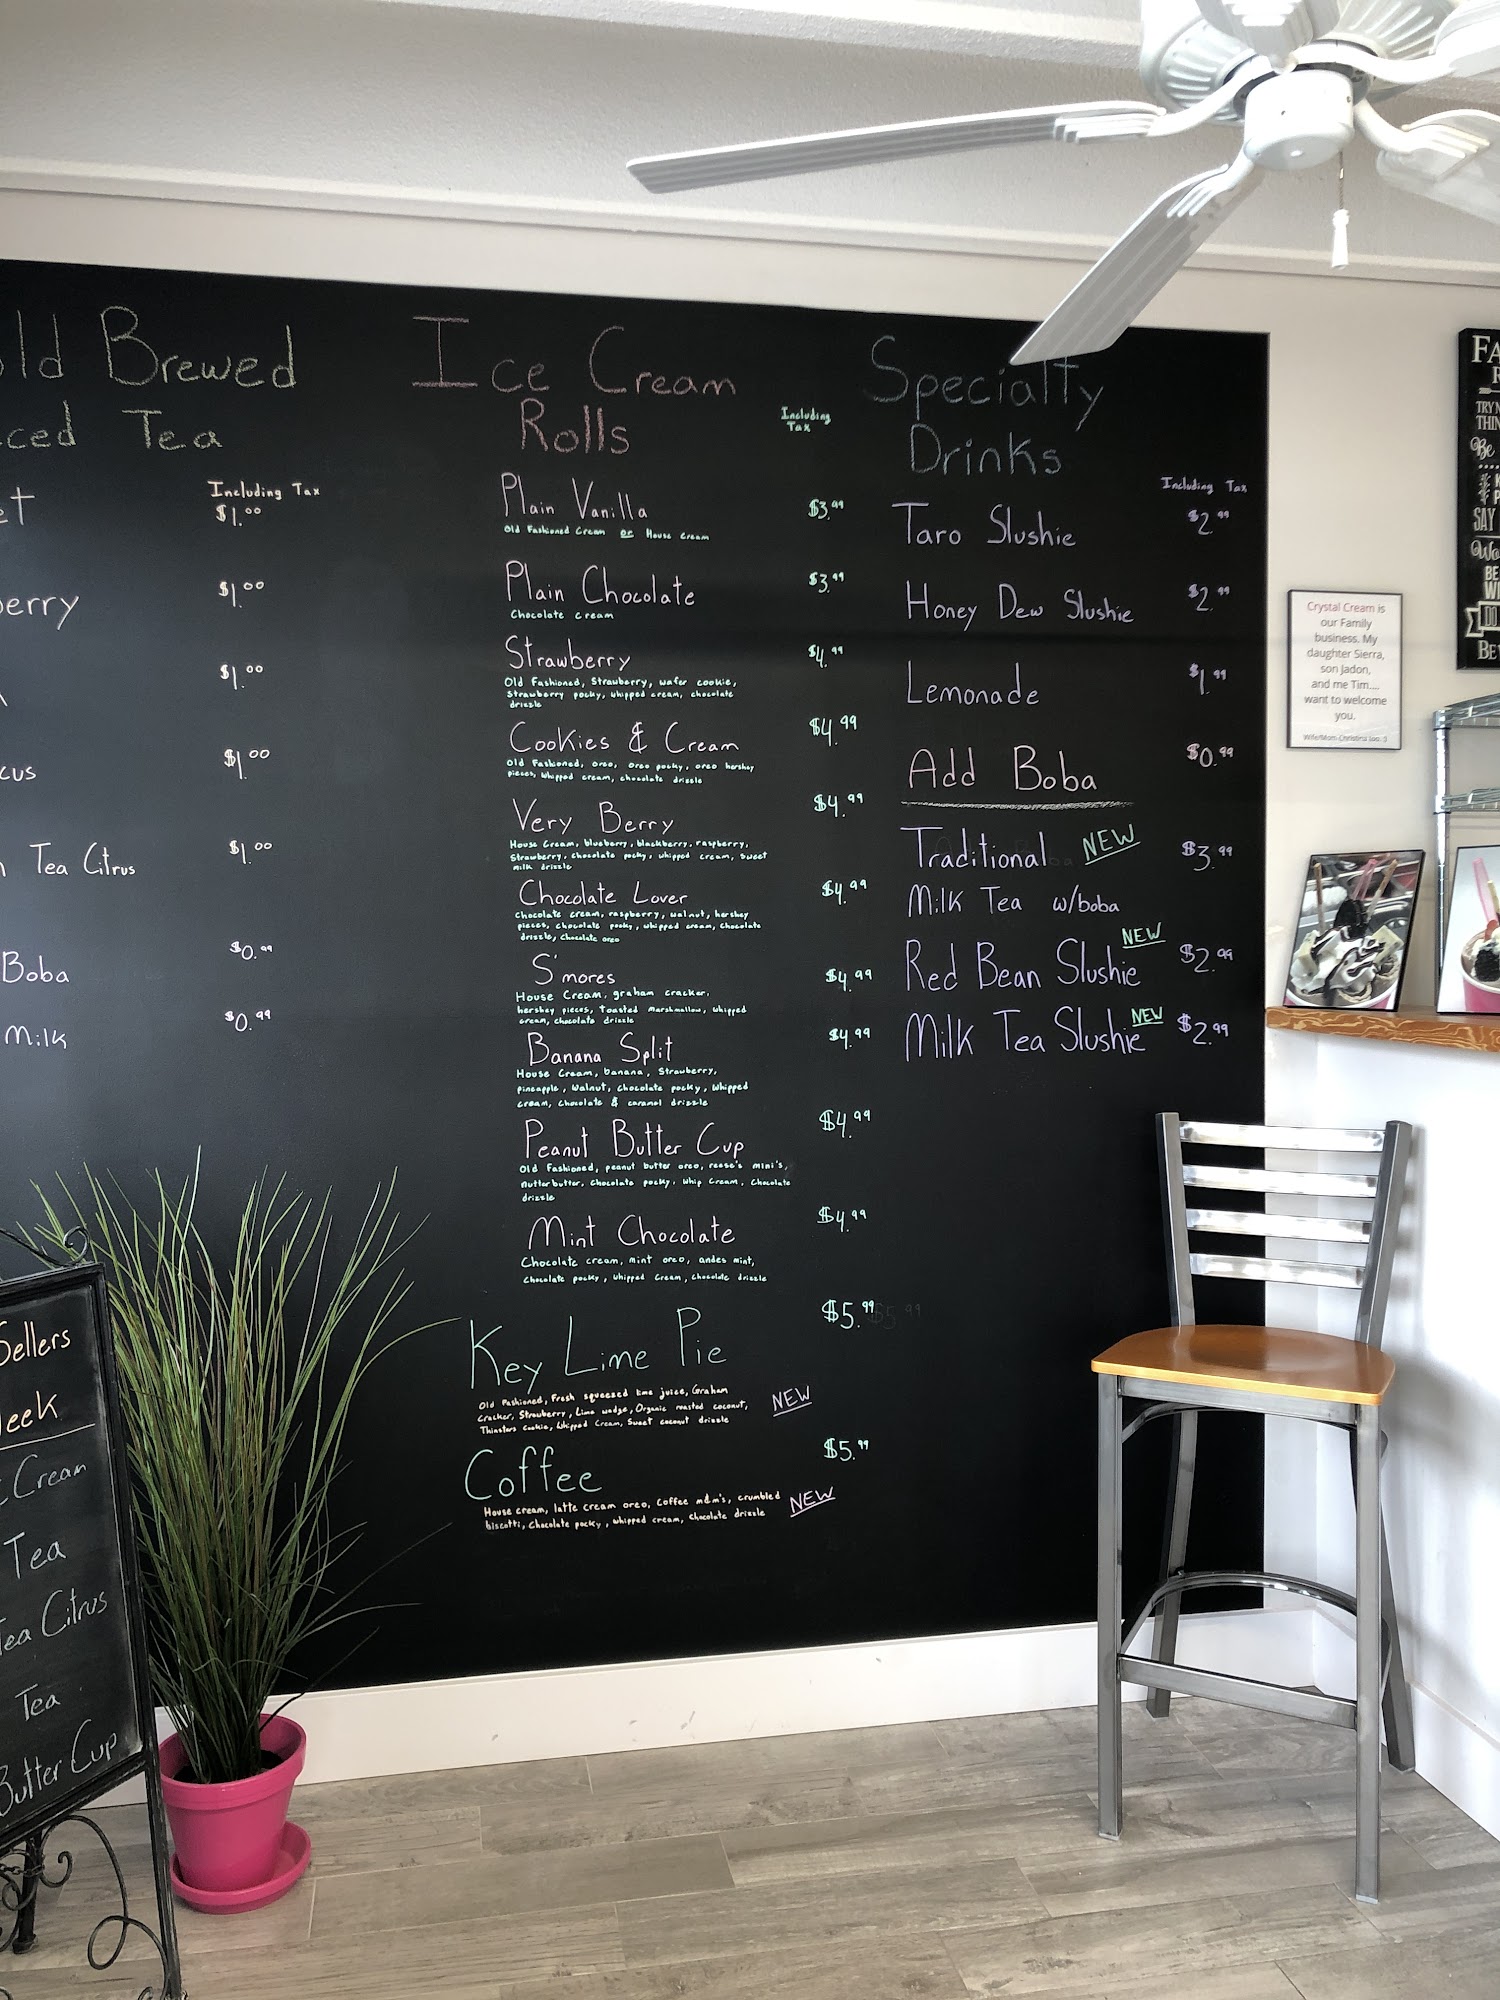 Brewed
Tea
Including Tax
$1.00
$1.00
$1.00
$1.00
Tea Citrus
$1.00
Boba
$0.99
Milk
$0.99
Ice Cream
Rolls
Including
Tax
Plain Vanilla
$3.99
Old Fashioned Cream or House Cream
Plain Chocolate
$3.99
Chocolate Cream
Strawberry
$4.99
Old Fashioned, Strawberry, wafer cookie,
Strawberry pocky, whipped cream, chocolate
drizzle
Cookies & Cream
$4.99
Old Fashioned, oreo, oreo pocky, oreo hershey
pieces, whipped cream, chocolate drizzle
Very Berry
$4.99
House Cream, blueberry, blackberry, raspberry,
Strawberry, chocolate pocky, whipped cream, sweet
milk drizzle
Chocolate Lover
$4.99
Chocolate cream, raspberry, walnut, hershey
pieces, chocolate pocky, whipped cream, chocolate
drizzle, chocolate oreo
S'mores
$4.99
House Cream, graham cracker,
hershey pieces, toasted marshmallow, whipped
cream, chocolate drizzle
Banana Split
$4.99
House Cream, banana, Strawberry,
pineapple, walnut, chocolate pocky, whipped
cream, chocolate & caramel drizzle
Peanut Butter Cup
$4.99
Old Fashioned, peanut butter oreo, reese's mini's,
nutter butter, chocolate pocky, whip cream, chocolate
drizzle
Mint Chocolate
$4.99
Chocolate cream, mint oreo, andes mint,
chocolate pocky, whipped cream, chocolate drizzle
Key Lime Pie
$5.99
Old Fashioned, Fresh squeezed lime juice, Graham
cracker, Strawberry, Lime wedge, Organic roasted coconut,
Thinsters cookie, whipped Cream, Sweet coconut drizzle
NEW
Coffee
$5.99
House cream, latte cream oreo, coffee m&m's, crumbled
biscotti, chocolate pocky, whipped cream, chocolate drizzle
NEW
Specialty
Drinks
Including Tax
Taro Slushie
$2.99
Honey Dew Slushie
$2.99
Lemonade
$1.99
Add Boba
$0.99
Traditional NEW
$3.99
Milk Tea w/boba
NEW
Red Bean Slushie
$2.99
NEW
Milk Tea Slushie
$2.99
Crystal Cream is
our Family
business. My
daughter Sierra,
son Jadon,
and me Tim....
want to welcome
you.
Sellers
Cream
Tea
Tea Citrus
Tea
Butter Cup
SAY